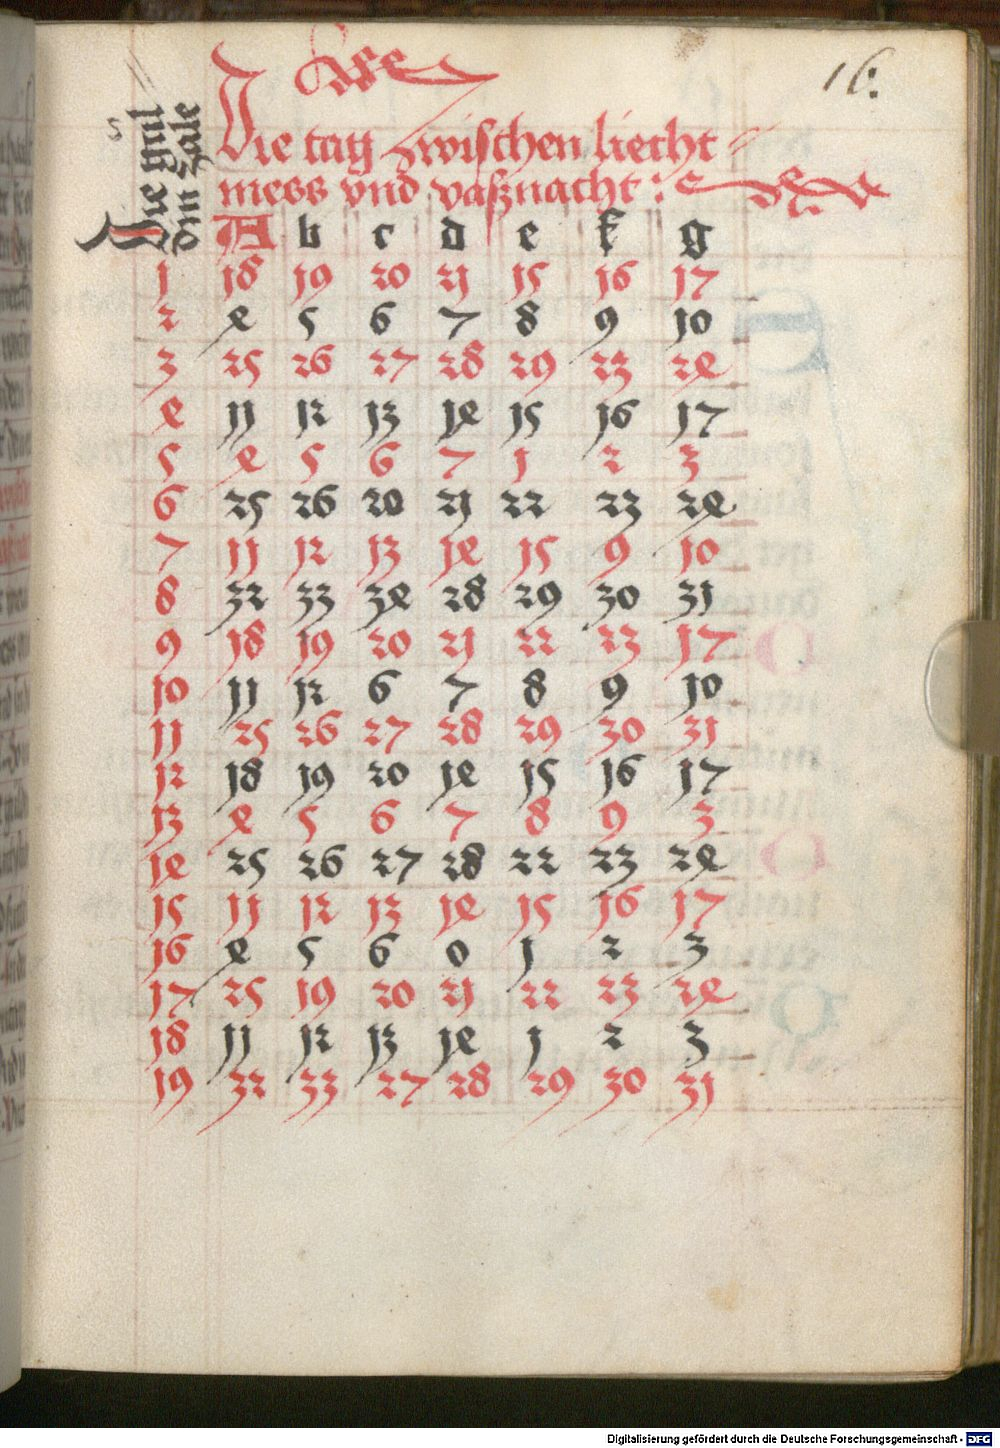 16.
Die gul
din zale
Die tag zwischen liecht
mess vnd vasznacht :
A b c d e f g
1 18 19 20 21 15 16 17
2 4 5 6 7 8 9 10
3 25 26 27 28 29 23 24
4 11 12 13 14 15 16 17
5 4 5 6 7 1 2 3
6 25 26 20 21 22 23 24
7 11 12 13 14 15 9 10
8 32 33 34 28 29 30 31
9 18 19 20 21 22 23 17
10 11 12 6 7 8 9 10
11 25 26 27 28 29 30 31
12 18 19 20 14 15 16 17
13 4 5 6 7 8 9 3
14 25 26 27 28 22 23 24
15 11 12 13 14 15 16 17
16 4 5 6 0 1 2 3
17 25 19 20 21 22 23 24
18 11 12 13 14 1 2 3
19 32 33 27 28 29 30 31
Digitalisierung gefördert durch die Deutsche Forschungsgemeinschaft - DFG